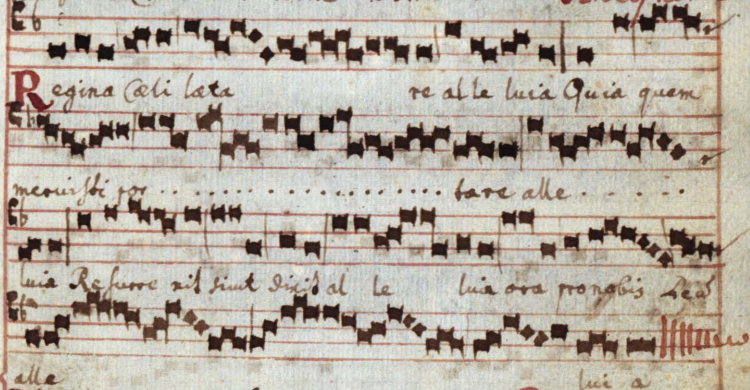 Regina Cæli læta re alle luia Quia quem
meruisti por . . . . . . . . . . . . . . . . tare alle . . . . . .
luia Resurre xit sicut dixit al le luia ora pro nobis
alle lui a